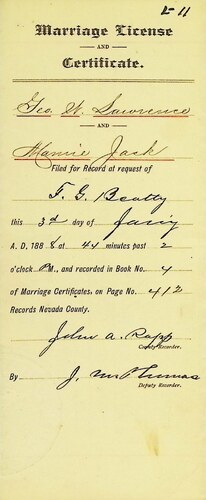 E 11
Marriage License
AND
Certificate.
Geo W. Lawrence
AND
Mamie Jack
Filed for Record at request of
F. G. Beatty
this 3d day of Jan'y
A. D. 1888 at 44 minutes past 2
o'clock P.M., and recorded in Book No. 4
of Marriage Certificates, on Page No. 412
Records Nevada County.
John A. Rapp
County Recorder.
By J. M. Thomas
Deputy Recorder.